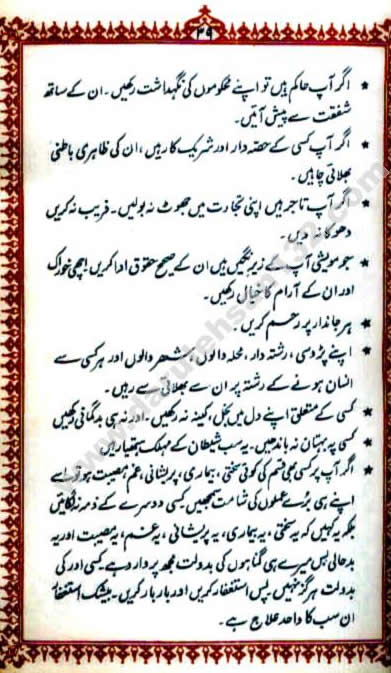 ۳۹
★ اگر آپ حاکم ہیں تو اپنے محکوموں کی نگہداشت رکھیں۔ ان کے ساتھ
شفقت سے پیش آئیں۔
★ اگر آپ کسی کے حصّہ دار اور شریک کار ہیں، ان کی ظاہری باطنی
بھلائی چاہیں۔
★ اگر آپ تاجر ہیں اپنی تجارت میں جھوٹ نہ بولیں۔ فریب نہ کریں
دھوکا نہ دیں۔
★ جو مویشی آپ کے زیر نگیں ہیں ان کے صحیح حقوق ادا کریں اچھی خوراک
اور ان کے آرام کا خیال رکھیں۔
★ ہر جاندار پر رحم کریں۔
★ اپنے پڑوسی، رشتہ دار، محلہ والوں، شہر والوں اور ہر کسی سے
انسان ہونے کے رشتہ پر ان سے بھلائی سے رہیں۔
★ کسی کے متعلق اپنے دل میں بخل، کینہ نہ رکھیں۔ اور نہ ہی بدگمانی رکھیں
★ کسی پہ بہتان نہ باندھیں۔ یہ سب شیطان کے مہلک ہتھیار ہیں
★ اگر آپ پر کسی بھی قسم کی کوئی سختی، بیماری، پریشانی، غم مصیبت ہو تو اسے
اپنے ہی بڑے عملوں کی شامت سمجھیں کسی دوسرے کے ذمہ نہ لگائیں
بلکہ کہیں کہ یہ سختی، یہ بیماری، یہ پریشانی، یہ غم، یہ مصیبت اور یہ
بدحالی بس میرے ہی گناہوں کی بدولت مجھ پر وارد ہے کسی اور کی
بدولت ہرگز نہیں۔ پس استغفار کریں اور بار بار کریں۔ بیشک استغفار
ان سب کا واحد علاج ہے۔